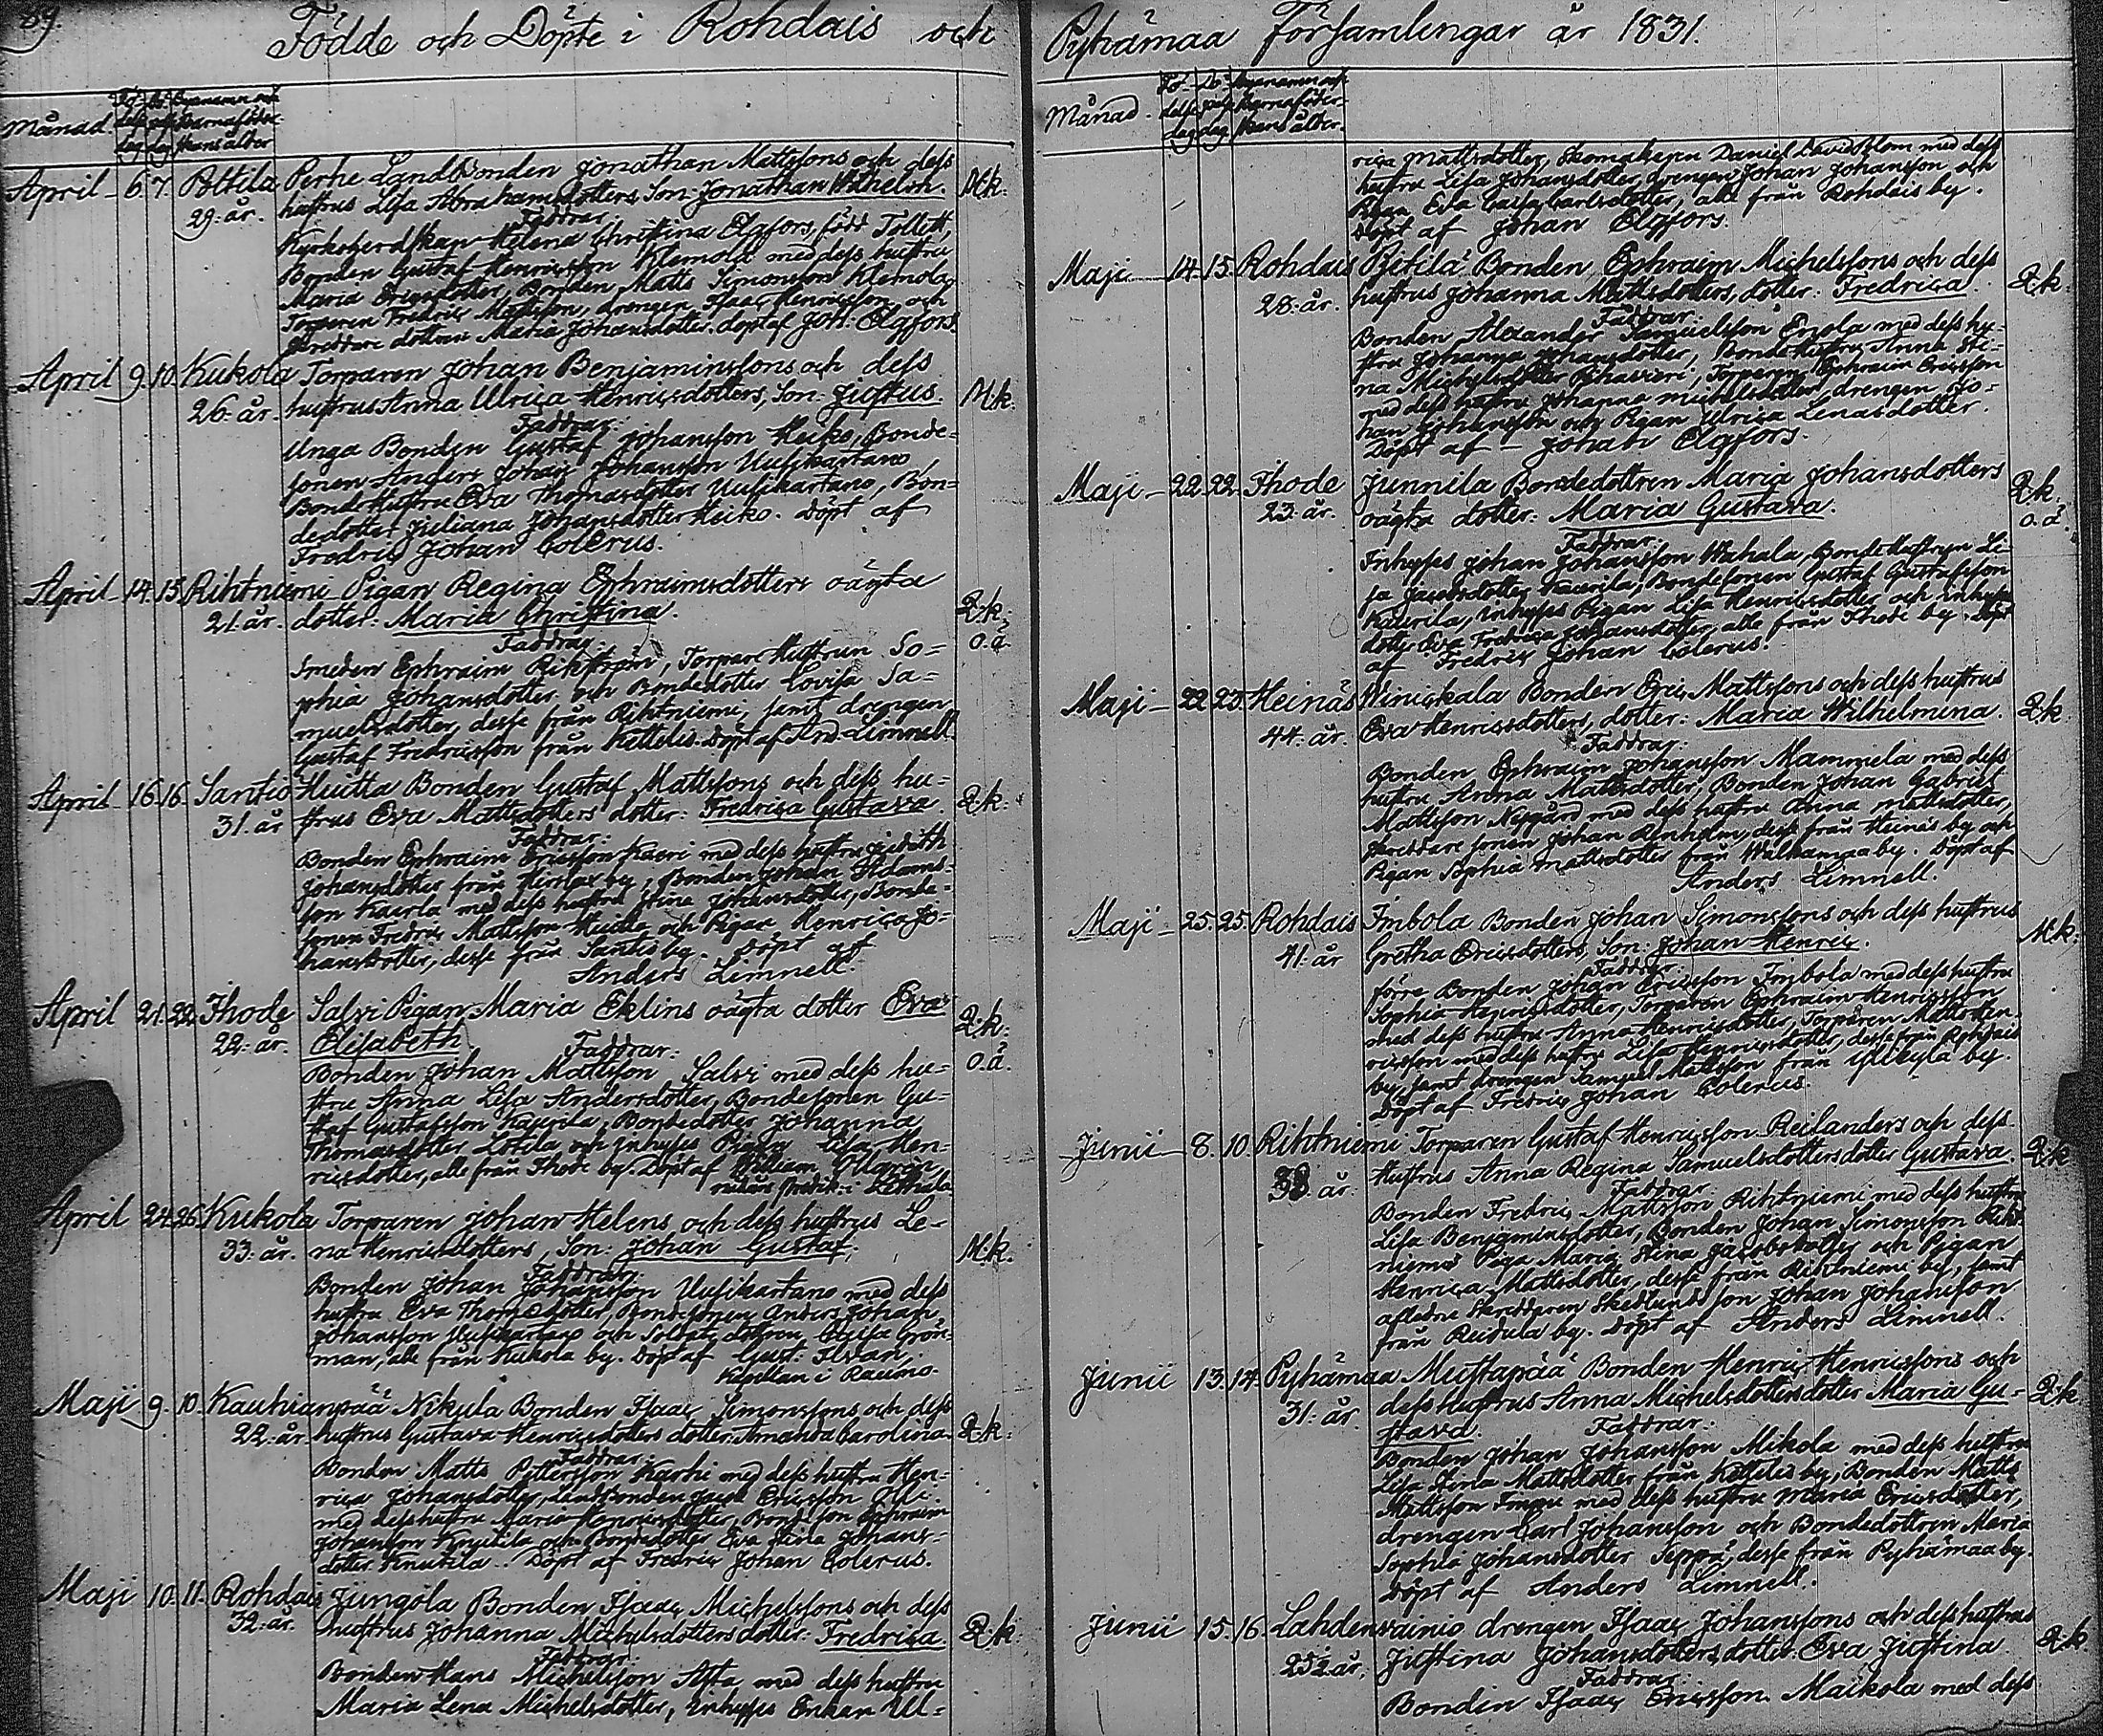 89.
Födde och Döpte i Rohdais och
Månad. Fö- delse dag Dö- pelse dag Byanamn och Barnaföder- skans ålder
April 6. 7. Pettila Perhe Landbonden Jonathan Mattssons och dess M.k.
29. år. hustrus Lisa Abrahamsdotters, Son: Jonathan Wilhelm.
Faddrar:
Kyrkoherdskan Helena Christina Elgfors, född Tollett,
Bonden Gustaf Henricsson Klemola med dess hustru
Maria Ericsdotter, Bonden Matts Simonsson Klemola,
Torparen Fredric Mattsson, drengen Isaac Henricsson och
skreddare dottren Maria Johansdotter. döpt af Joh: Elgfors.
April 9. 10. Kukola Torparen Johan Benjaminssons och dess
26. år. hustrus Anna Ulrica Henricsdotters, Son: Justus. M.k.
Faddrar:
Unga Bonden Gustaf Johansson Heiko, Bonde-
sonen Anders Johan Johansson Uusikartano
BondeHustru Eva Thomasdotter Uusikartano, Bon-
dedotter Juliana Johansdotter Heiko. Döpt af
Fredric Johan Colerus.
April 14. 15. Rihtniemi Pigan Regina Ephraimsdotters oägta
21. år. dotter: Maria Christina. Q.k. o.ä.
Faddrar:
Smeden Ephraim Rihström, TorpareHustrun So-
phia Johansdotter och Bondedotter Lovisa Sa-
muelsdotter, desse från Rihtniemi, samt drengen
Gustaf Fredricsson från Kettelis. Döpt af And. Limnell.
April 16. 16. Santio Huitta Bonden Gustaf Mattssons och dess hu-
31. år strus Eva Mattsdotters dotter: Fredrica Gustava Q.k.
Faddrar:
Bonden Ephraim Ericsson Kauri med dess hustru Judith
Johansdotter från by, Bonden Johan Adams-
son Kaurla med dess hustru Stina Johansdotter, Bonde-
sonen Fredric Mattsson Huitta och Pigan Henrica Jo-
hansdotter, desse från Santio by. Döpt af
Anders Limnell.
April 21. 22. Ihode Salvi Pigan Maria Eklins oägta dotter Eva
22. år. Elisabeth. Faddrar: Q.k. o.ä.
Bonden Johan Mattsson Salvi med dess hu-
stru Anna Lisa Andersdotter, Bondesonen Gu-
staf Gustafsson Kaurila, Bondedotter Johanna
Thomasdotter Lotila och Inhyses Pigan Lisa Hen-
ricsdotter, alle från Ihode by. Döpt af William
i
April 24. 26. Kukola Torparen Johan Helens och dess hustrus Le-
33. år. na Henricsdotters, Son: Johan Gustaf. M.k.
Faddrar:
Bonden Johan Johansson Uusikartano med dess
hustru Eva Thomasdotter, Bondesonen Anders Johan
Johansson Uusikartano och Soldats dottren Grön-
man, alle från Kukola by. Döpt af Gust:
Capellan i Raumo.
Maji 9. 10. Kauhianpää Nikula Bonden Isaac Simonssons och dess
22. år. hustrus Gustava Henricsdotters dotter. Amanda Carolina. Q.k.
Faddrar:
Bonden Matts Pettersson Karhi med dess hustru Hen-
rica Johansdotter, Landbonden Ericsson
med dess hustru Maria Henricsdotter, Ephraim
Johansson Knutila och Bondedotter Eva Stina Johans-
dotter Knutila. Döpt af Fredric Johan Colerus.
Maji 10. 11. Rohdais Jungola Bonden Isaac Michelssons och dess
32. år. hustrus Johanna Michelsdotters dotter: Fredrica. Q.k.
Faddrar:
Bonden Hans Michelsson med dess hustru
Maria Lena Michelsdotter, Inhyses Enkan Ul-
Pyhämaa Församlingar år 1831.
Månad. Fö- delse dag Dö- pelse dag Byanamn och Barnaföder- skans ålder.
rica Mattsdotter, Skomakaren Daniel David Blom med dess
hustru Lisa Johansdotter, drengen Johan Johansson, och
Pigan Eva Caisa Carlsdotter, alle från Rohdais by.
Döpt af Johan Elgfors.
Maji 14. 15. Rohdais Pietilä Bonden Ephraim Michelssons och dess
28. år. hustrus Johanna Mattsdotters, dotter: Fredrica. Q.k.
Faddrar:
Bonden Alexander Samuelsson Erola med dess hu-
stru Johanna Johansdotter, BondeHustru Anna Sti-
na Michelsdotter Torparen Ephraim Ericsson
med dess hustru Johanna Michelsdotter, drengen Jo-
han Johansson och Pigan Ulrica Lenasdotter.
Döpt af Johan Elgfors.
Maji 22. 22. Ihode Junnila Bondedottren Maria Johansdotters
23. år. oägta dotter: Maria Gustava. Q.k. o.ä.
Faddrar:
Inhyses Johan Johansson Wahala, BondeHustrun Li-
sa Jacobsdotter Kaurila, Bondesonen Gustaf Gustafsson
Kaurila, inhyses Pigan Lisa Henricsdotter och inhyses
dotter Eva Fredrica Johansdotter, alle från Ihode by. Döpt
af Fredric Johan Colerus.
Maji 22. 23. Heinäs Winickala Bonden Eric Mattssons och dess hustrus
44. år. Eva Henricsdotters, dotter: Maria Wilhelmina. Q.k.
Faddrar:
Bonden Ephraim Johansson Mammela med dess
hustru Anna Mattsdotter, Bonden Johan Gabriel
Mattsson Nygård med dess hustru Anna Mattsdotter,
skreddare sonen Johan Renholm, desse från Heinäs by och
Pigan Sophia Mattsdotter från Walkamaa by. Döpt af
Anders Limnell.
Maji 25. 25. Rohdais Imbola Bonden Johan Simonssons och dess hustrus
41. år Gretha Ericsdotters, Son: Johan Henric. M.k.
Faddrar:
förre Bonden Johan Ericsson Imbola med dess hustru
Sophia Henricsdotter, Torparen Ephraim Henricsson
med dess hustru Anna Henricsdotter, Torparen Matts Hen-
ricsson med dess hustru Lisa Henricsdotter, desse från Rohdais
by, samt drengen Samuel Mattsson från Yllkylä by.
Döpt af Fredric Johan Colerus.
Junii 8. 10. Rihtniemi Torparen Gustaf Henricsson Reilanders och dess
38 år. Hustrus Anna Regina Samuelsdotters dotter Gustava. Q.k
Faddrar:
Bonden Fredric Mattsson Rihtniemi med dess hustru
Lisa Benjaminsdotter, Bonden Johan Simonsson Riht-
niemis Piga Maria Stina Jacobsdotter och Pigan
Henrica Mattsdotter, desse från Rihtniemi by, samt
afledne Skreddaren Skedlunds son Johan Johansson
från Reidula by. Döpt af Anders Limnell.
Junii 13. 14. Pyhämaa Mustapää Bonden Henric Henricssons och
31. år. dess Hustrus Anna Michelsdotters dotter Maria Gu- Q.k
stava. Faddrar:
Bonden Johan Johansson Mikola med dess hustru
Lisa Mattsdotter från Kettelis by, Bonden Matts
Mattsson med dess hustru Maria Ericsdotter,
drengen Carl Johansson och Bondedottren Maria
Sophia Johansdotter Seppä, desse från Pyhämaa by.
Döpt af Anders Limnell.
Junii 15. 16. Lahdenvainio drengen Isaac Johanssons och dess hustrus
25½ år. Justina Johansdotters, dotter: Eva Justina. Q.k
Faddrar:
Bonden Isaac Ericsson Maikola med dess